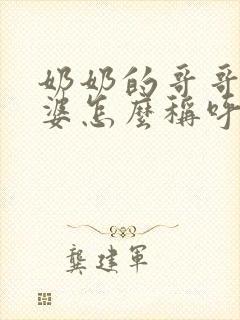 奶奶的哥哥
婆怎麼稱呼
龔建軍